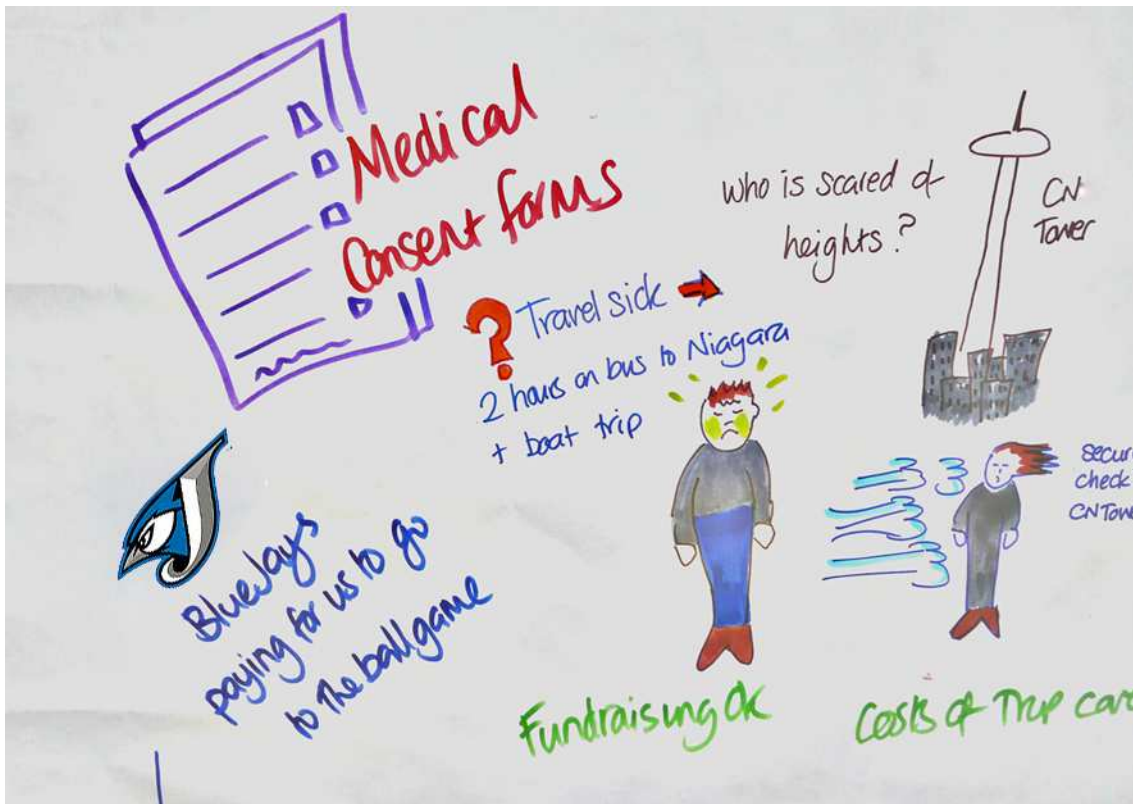 Medical
Consent forms
who is scared of
heights?
CN
Tower
? Travel sick
2 hours on bus to Niagara
+ boat trip
secur
check
CN Tow
BlueJays
paying for us to go
to the ball game
Fundraising Ok
Costs of Trip